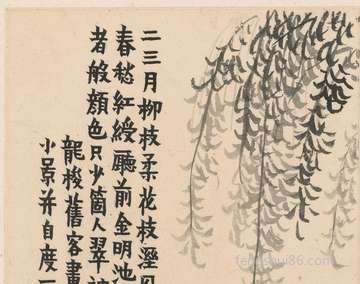 二三月柳枝柔花枝溼
春愁紅綬廳前金明池
者般顏色只少箇人翠
龍梭舊客畫
小景并自度一
fengshui86.com